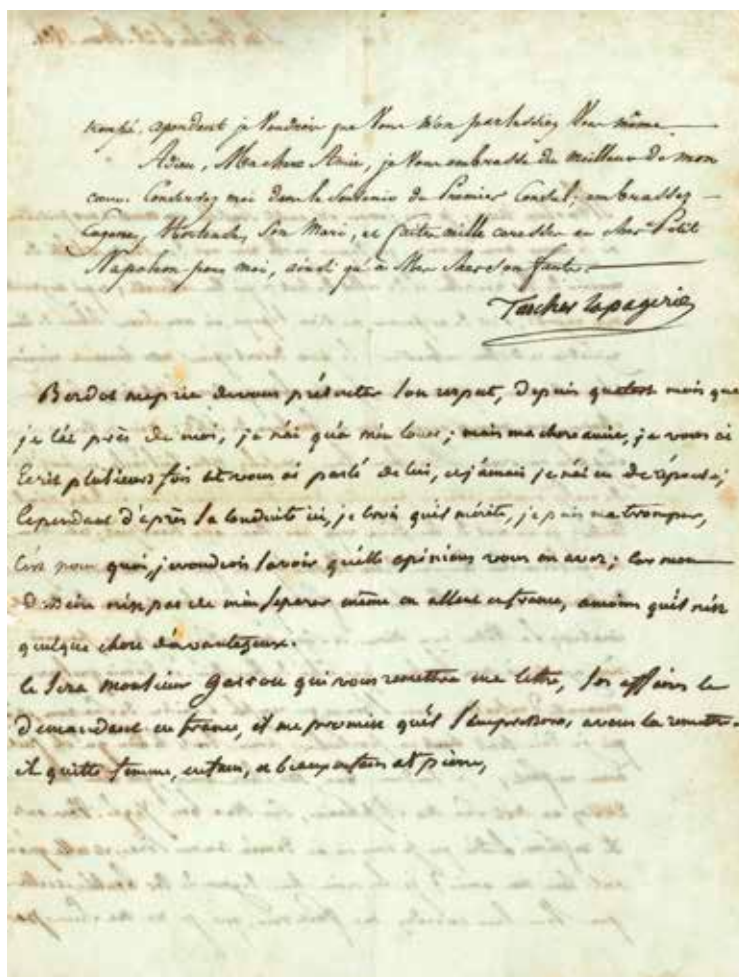 trompé. cependant je voudrois que vous m'en parlassiez vous même
Adieu, Ma chere Amie, je vous embrasse du meilleur de mon
coeur. Conservez moi dans le souvenir du Premier Consul; embrassez
Eugene, Hortense, son Mari, et faites mille caresses au cher Petit
Napoleon pour moi, ainsi qu'à
Tascher Lapagerie
me prie de vous présenter son respect, depuis mois que
je l'ai près de moi, je n'ai qu'à m'en louer; mais ma chere amie, je vous ai
Ecrit plusieurs fois et vous ai parlé de lui, et jamais je n'ai eu de réponse;
Cependant d'après sa conduite ici, je qu'il mérite, je puis me tromper,
C'est pour quoi, je voudrois savoir qu'elle opinions vous en avez; car mon
n'est pas de m'en separer même en allent en france, amoins qu'il n'est
quelque chose d'avantageux.
Ce sera monsieur qui vous remettra ma lettre, ses affaires le
demandent en france, il me promise qu'il la remettre.
il quitte femme, enfans,